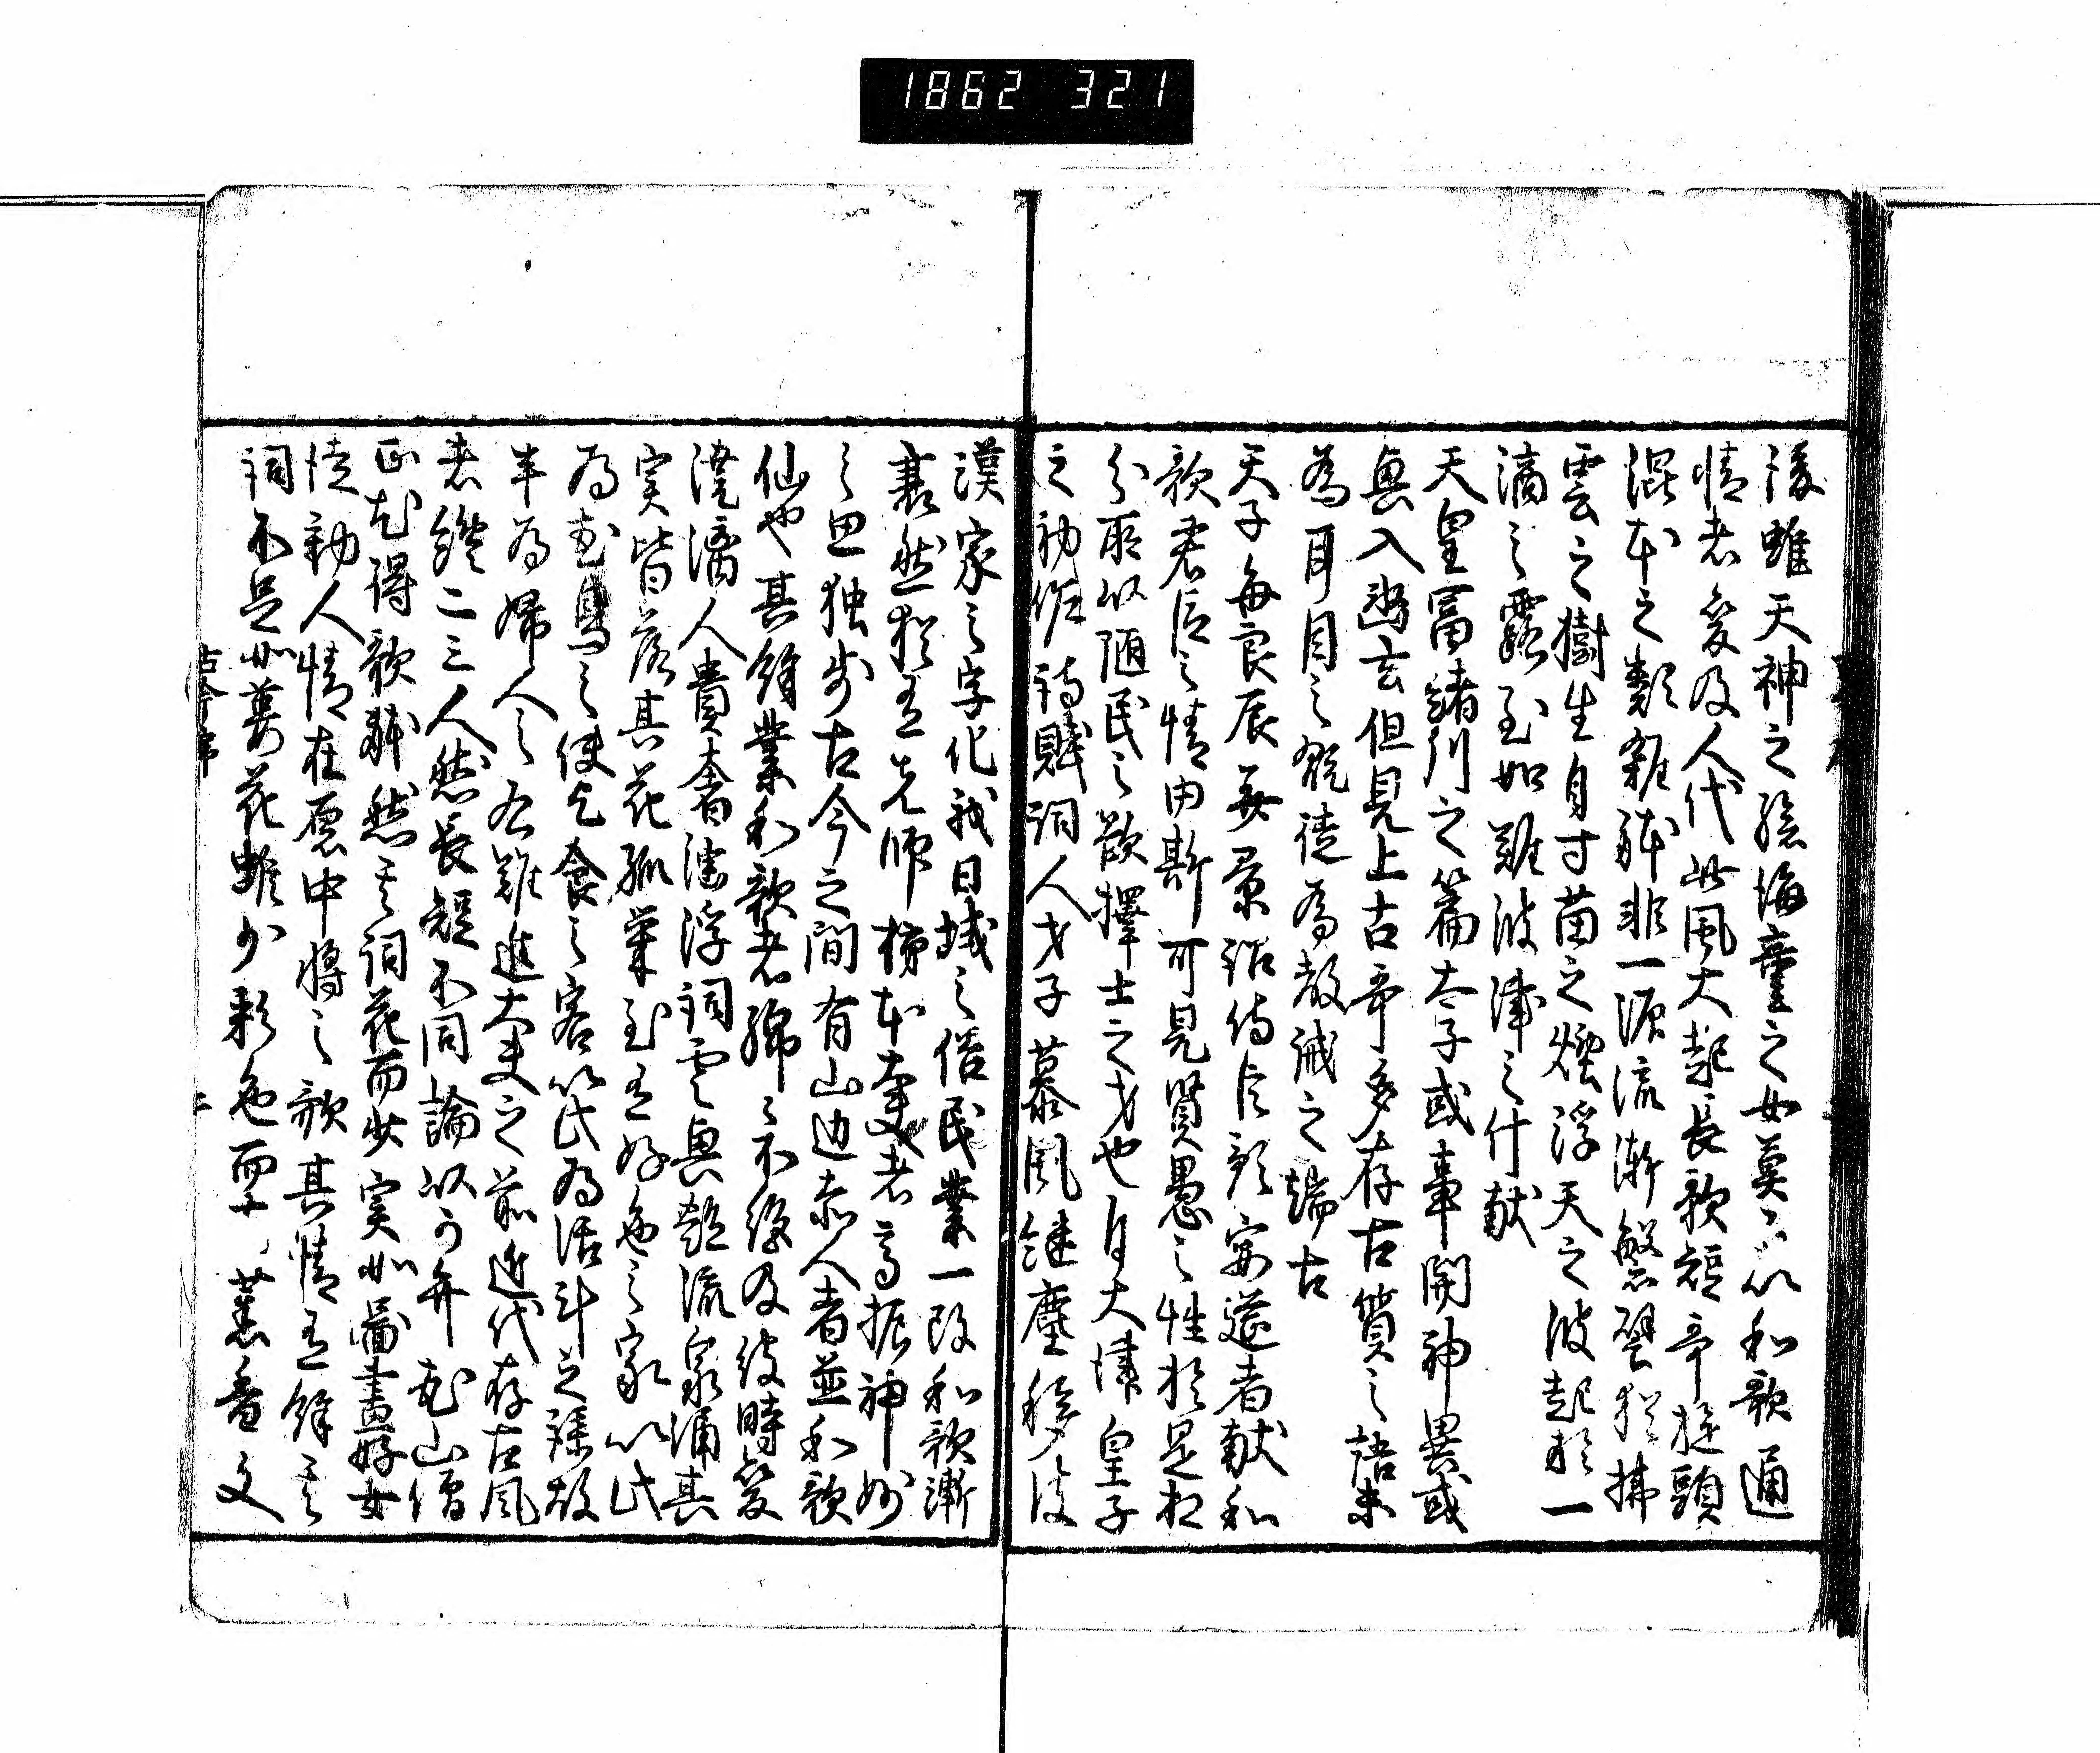 1862 321
後雖天神之孫海童之女莫不以和歌通
情者爰及人代此風大起長歌短哥旋頭
混本之類雜躰非一源流漸繁譬猶拂
雲之樹生自寸苗之煙浮天之波起於一
滴之露至如難波津之什献
天皇冨緒川之篇太子或事関神異或
興入幽玄但見上古哥多存古質之語未
為耳目之翫徒為教誡之端古
天子毎良辰美景詔侍臣預宴莚者献和
歌君臣之情由斯可見賢愚之性於是相
分所以随民之欲擇士之才也自大津皇子
之初作詩賦詞人才子慕風継塵移彼
漢家之字化我日域之俗民業一改和歌漸
衰然猶有先師柿本大夫者高振神妙
之思独歩古今之間有山辺赤人者並和歌
仙也其餘業和歌者綿〻不絶及彼時変
澆漓人貴奢淫浮詞雲興艶流泉涌其
実皆落其花孤栄至有好色之家以此
為花鳥之使乞食之客以此為活計之謀故
半為婦人之右難進大夫之前近代存古風
者纔二三人然長短不同論以可弁花山僧
正尤得歌躰然其詞花而少実如圖畫好女
徒動人情在原中将之歌其情有餘其
詞不足如萎花雖少彩色而有薫香文
古今序